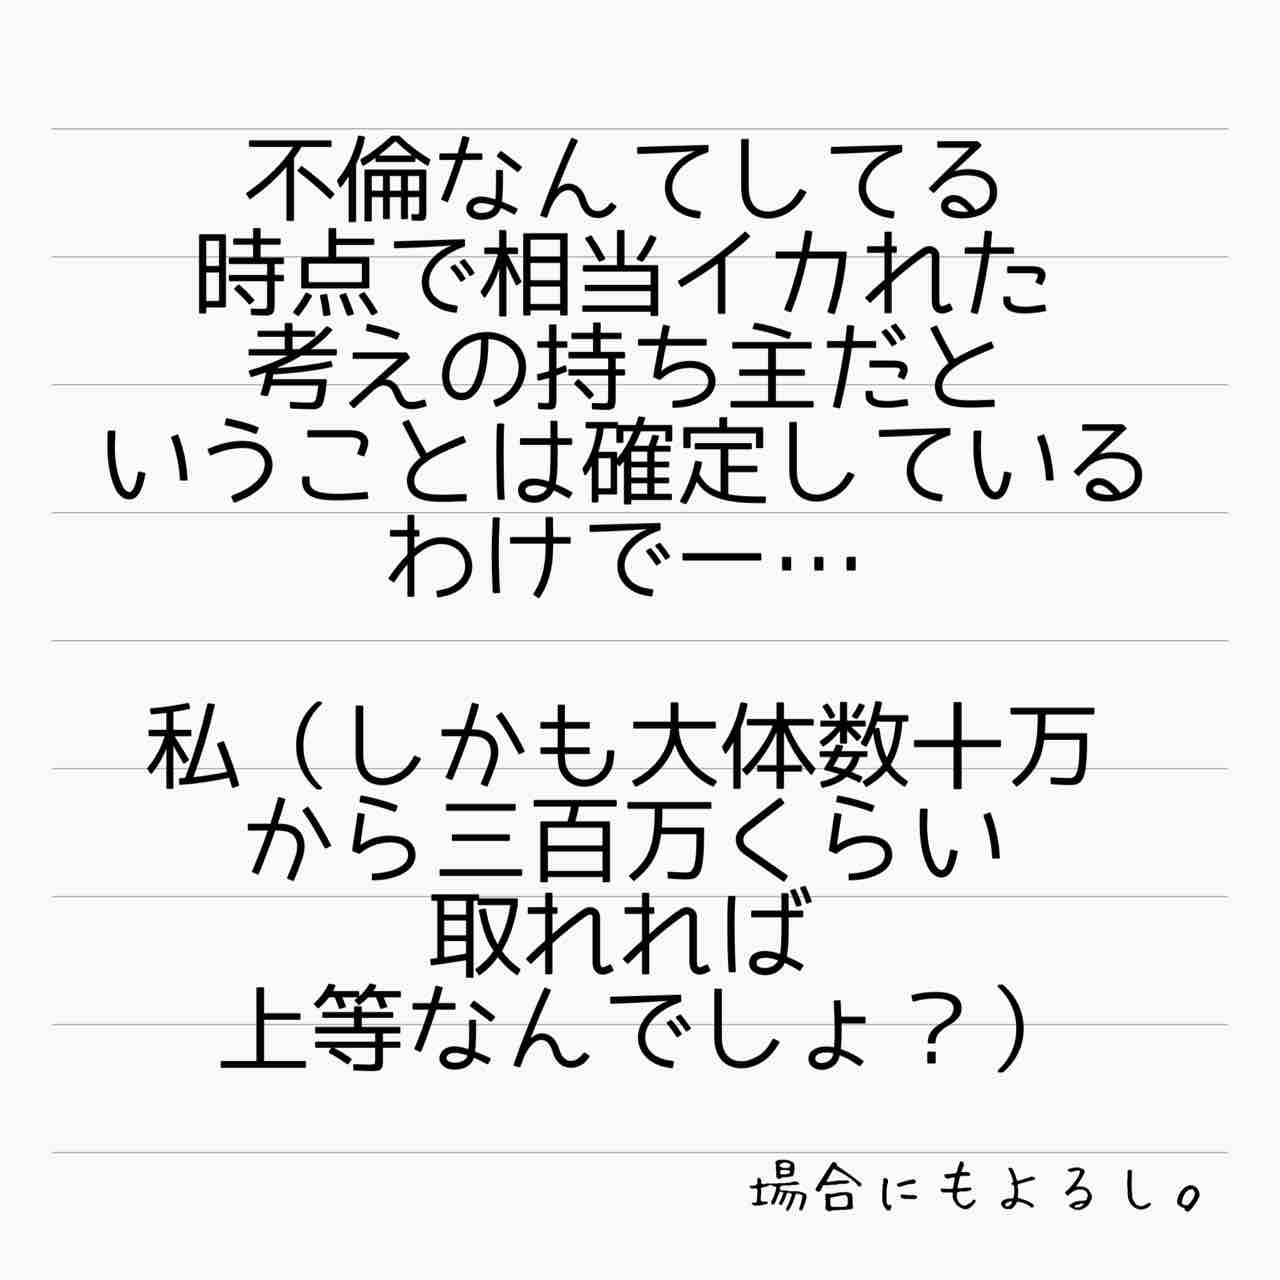 不倫なんてしてる
時点で相当イカれた
考えの持ち主だと
いうことは確定している
わけでー…
私（しかも大体数十万
から三百万くらい
取れれば
上等なんでしょ？）
場合にもよるし。